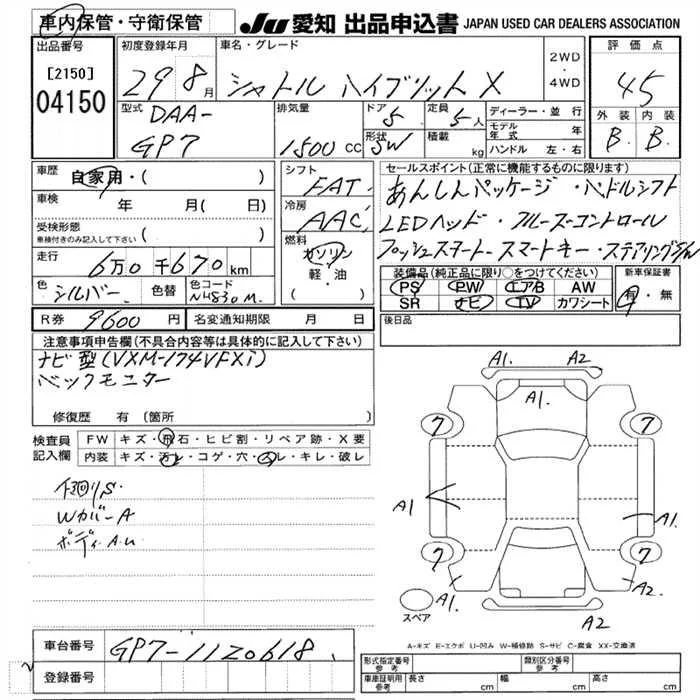 車内保管・守衛保管 JU 愛知 出品申込書 JAPAN USED CAR DEALERS ASSOCIATION
出品番号 初度登録年月 車名・グレード 2WD・4WD 評価点
[2150] 29 8月 シャトル ハイブリット X 45
04150
型式 DAA-GP7 排気量 1500 CC ドア 5 定員 5人 ディーラー・並行 外装 内装
形状 SW 積載 kg モデル年式 年 B. B.
ハンドル 左・右
車歴 自家用・( ) シフト FAT. セールスポイント(正常に機能するものに限ります)
車検 年 月( 日) 冷房 AAC. あんしんパッケージ・パドルシフト
受検形態 LEDヘッド・クルーズコントロール
車検付きのみ記入して下さい ( ) 燃料 プッシュスタート・スマートキー・ステアリングS/W
走行 6万0千670km ガソリン 装備品(純正品に限り○をつけてください) 新車保証書
軽・油 PS PW エアB AW 有・無
色 シルバー 色替 色コード NH830M. ( ) SR ナビ TV カワシート
R券 9600円 名変通知期限 月 日 後日品
注意事項申告欄(不具合内容等は具体的に記入して下さい)
ナビ型(VXM-174VFXi) A1. A2
バックモニター A1.
修復歴 有(箇所 )
検査員記入欄 FW キズ・飛石・ヒビ割・リペア跡・X要 7 7
内装 キズ・汚レ・コゲ・穴・スレ・キレ・破レ
下廻りS
WカバーA A1 A1
ボディA.U 7 7
A1. A2.
スペア
A-キズ E-エクボ U-凹み W-補修跡 S-サビ C-腐食 XX-交換済
車台番号 GP7-1120618
登録番号
形式指定番号 参考 類別区分番号 参考
車庫証明用 参考 長さ cm 幅 cm 高さ cm